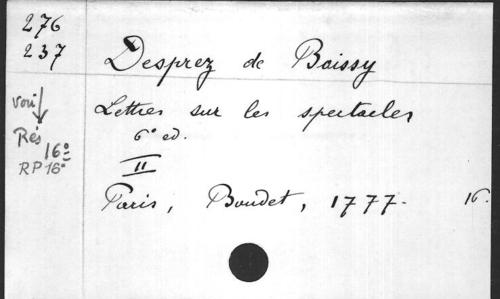 276
237
Desprez de Boissy
voir
Lettres sur les spectacles
6° ed.
Rés 16°
RP 16°
II
Paris, Boudet, 1777. 16.